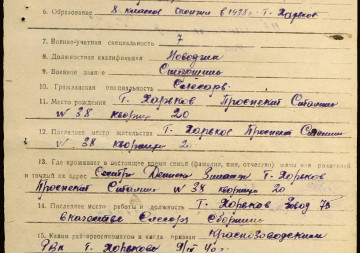 6. Образование 8 классов окончил в 1938г. г. Харьков
7. Военно-учетная специальность 7
8. Должностная квалификация Наводчик
9. Военное звание
10. Гражданская специальность Слесарь
11. Место рождения Г. Харьков Проспект Сталина
№ 38 квартира 20
12. Последнее место жительства Г. Харьков Проспект Сталина
№ 38 квартира 2
13. Где проживает в настоящее время семья (фамилия, имя, отчество) жены или родителей
и точный их адрес Сестра Г. Харьков
Проспект Сталина № 38 квартира 20
14. Последнее место работы и должность Г. Харьков Завод 75
в качестве Слесаря Сборщика
15. Каким райгорвоенкоматом и когда призван Краснозаводским
РВК Г. Харькова